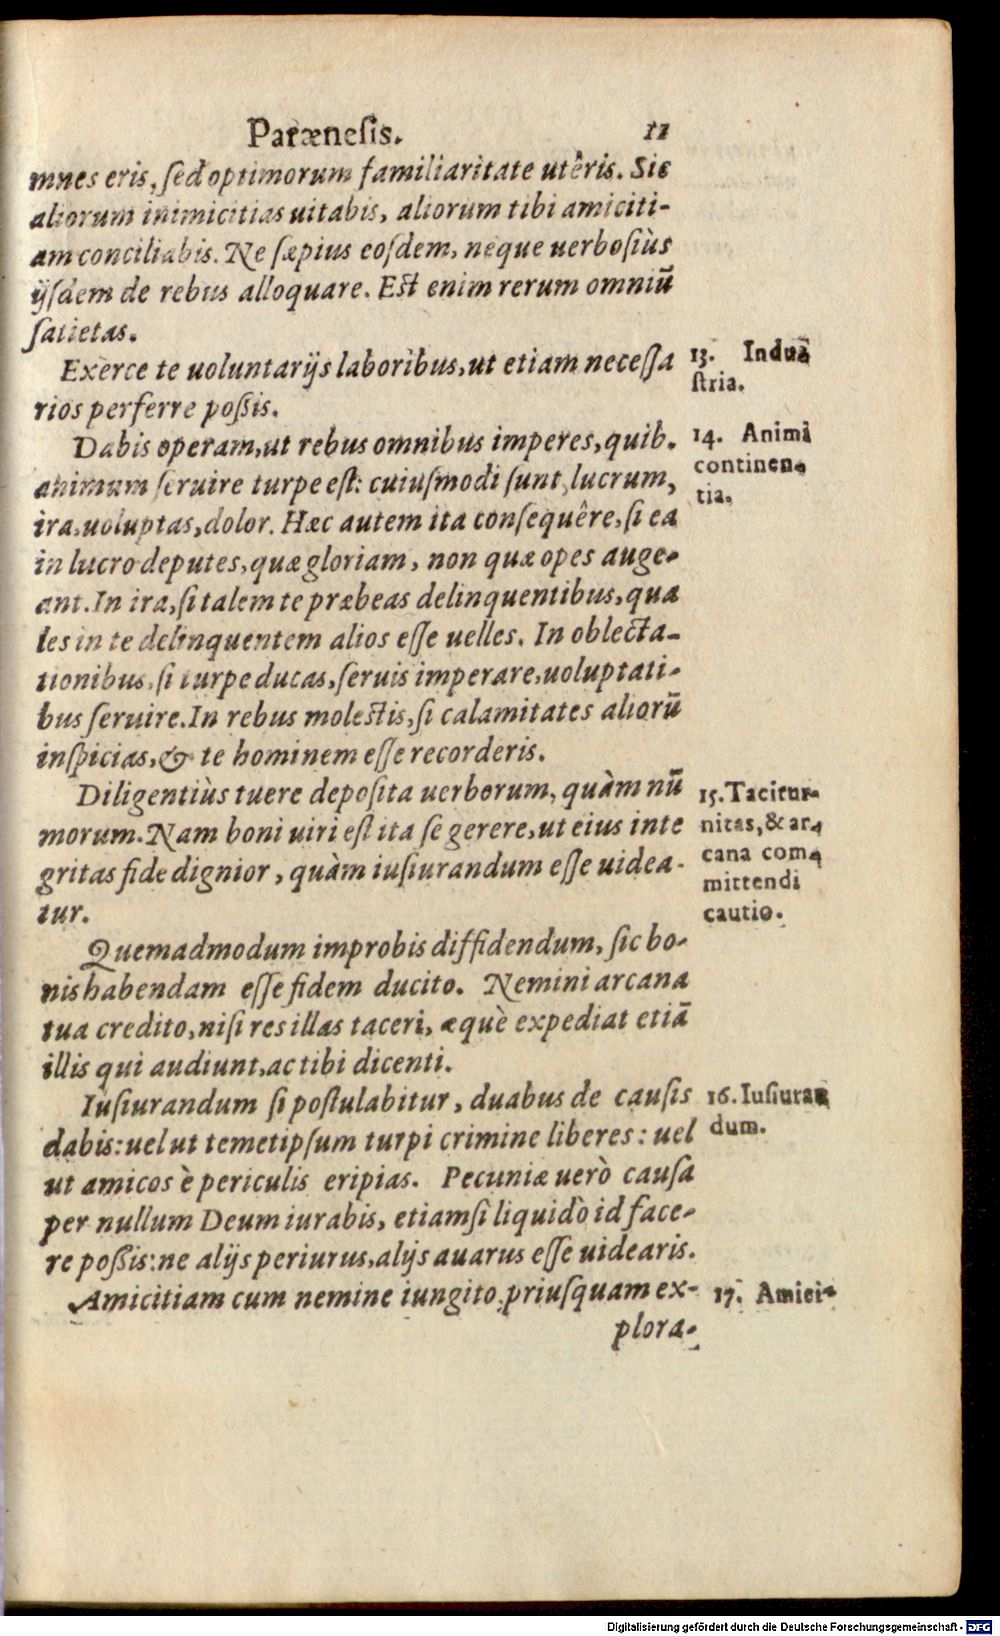 Parænesis. 11
mnes eris, sed optimorum familiaritate utêris. Sic
aliorum inimicitias uitabis, aliorum tibi amiciti-
am conciliabis. Ne sæpius eosdem, neque uerbosiùs
ijsdem de rebus alloquare. Est enim rerum omniũ
satietas.
Exerce te uoluntarijs laboribus, ut etiam necessa
rios perferre possis.
13. Indu-
stria.
Dabis operam, ut rebus omnibus imperes, quib.
animum seruire turpe est: cuiusmodi sunt, lucrum,
ira, uoluptas, dolor. Hæc autem ita consequêre, si ea
in lucro deputes, quæ gloriam, non quæ opes auge-
ant. In ira, si talem te præbeas delinquentibus, qua
les in te delinquentem alios esse uelles. In oblecta-
tionibus, si turpe ducas, seruis imperare, uoluptati-
bus seruire. In rebus molestis, si calamitates aliorũ
inspicias, & te hominem esse recorderis.
14. Animi
continen-
tia.
Diligentiùs tuere deposita uerborum, quàm nũ
morum. Nam boni uiri est ita se gerere, ut eius inte
gritas fide dignior, quàm iusiurandum esse uidea-
tur.
15. Tacitur-
nitas, & ar-
cana com-
mittendi
cautio.
Quemadmodum improbis diffidendum, sic bo-
nis habendam esse fidem ducito. Nemini arcana
tua credito, nisi res illas taceri, æquè expediat etiã
illis qui audiunt, ac tibi dicenti.
Iusiurandum si postulabitur, duabus de causis
dabis: uel ut temetipsum turpi crimine liberes: uel
ut amicos è periculis eripias. Pecuniæ uerò causa
per nullum Deum iurabis, etiamsi liquidò id face-
re possis: ne alijs periurus, alijs auarus esse uidearis.
16. Iusiuran
dum.
Amicitiam cum nemine iungito, priusquam ex-
17. Amici-
plora-
Digitalisierung gefördert durch die Deutsche Forschungsgemeinschaft - DFG